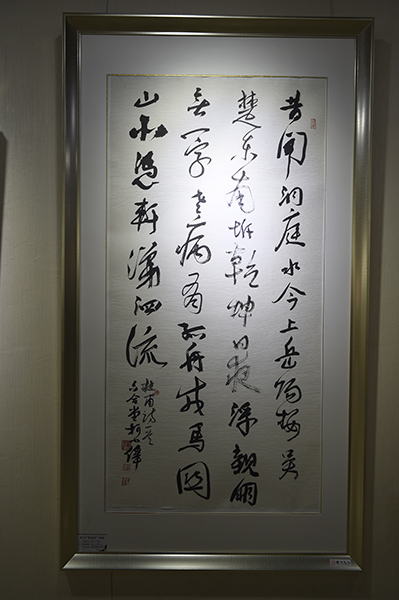 昔闻洞庭水今上岳陽楼吴
楚东南坼乾坤日夜浮親朋
无一字老病有孤舟戎馬関
山北憑軒涕泗流
杜甫诗一首